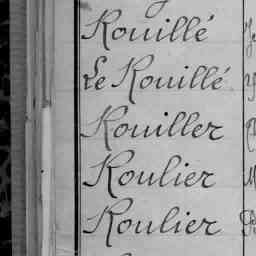 Rouillé
Le Rouillé
Rouiller
Roulier
Roulier